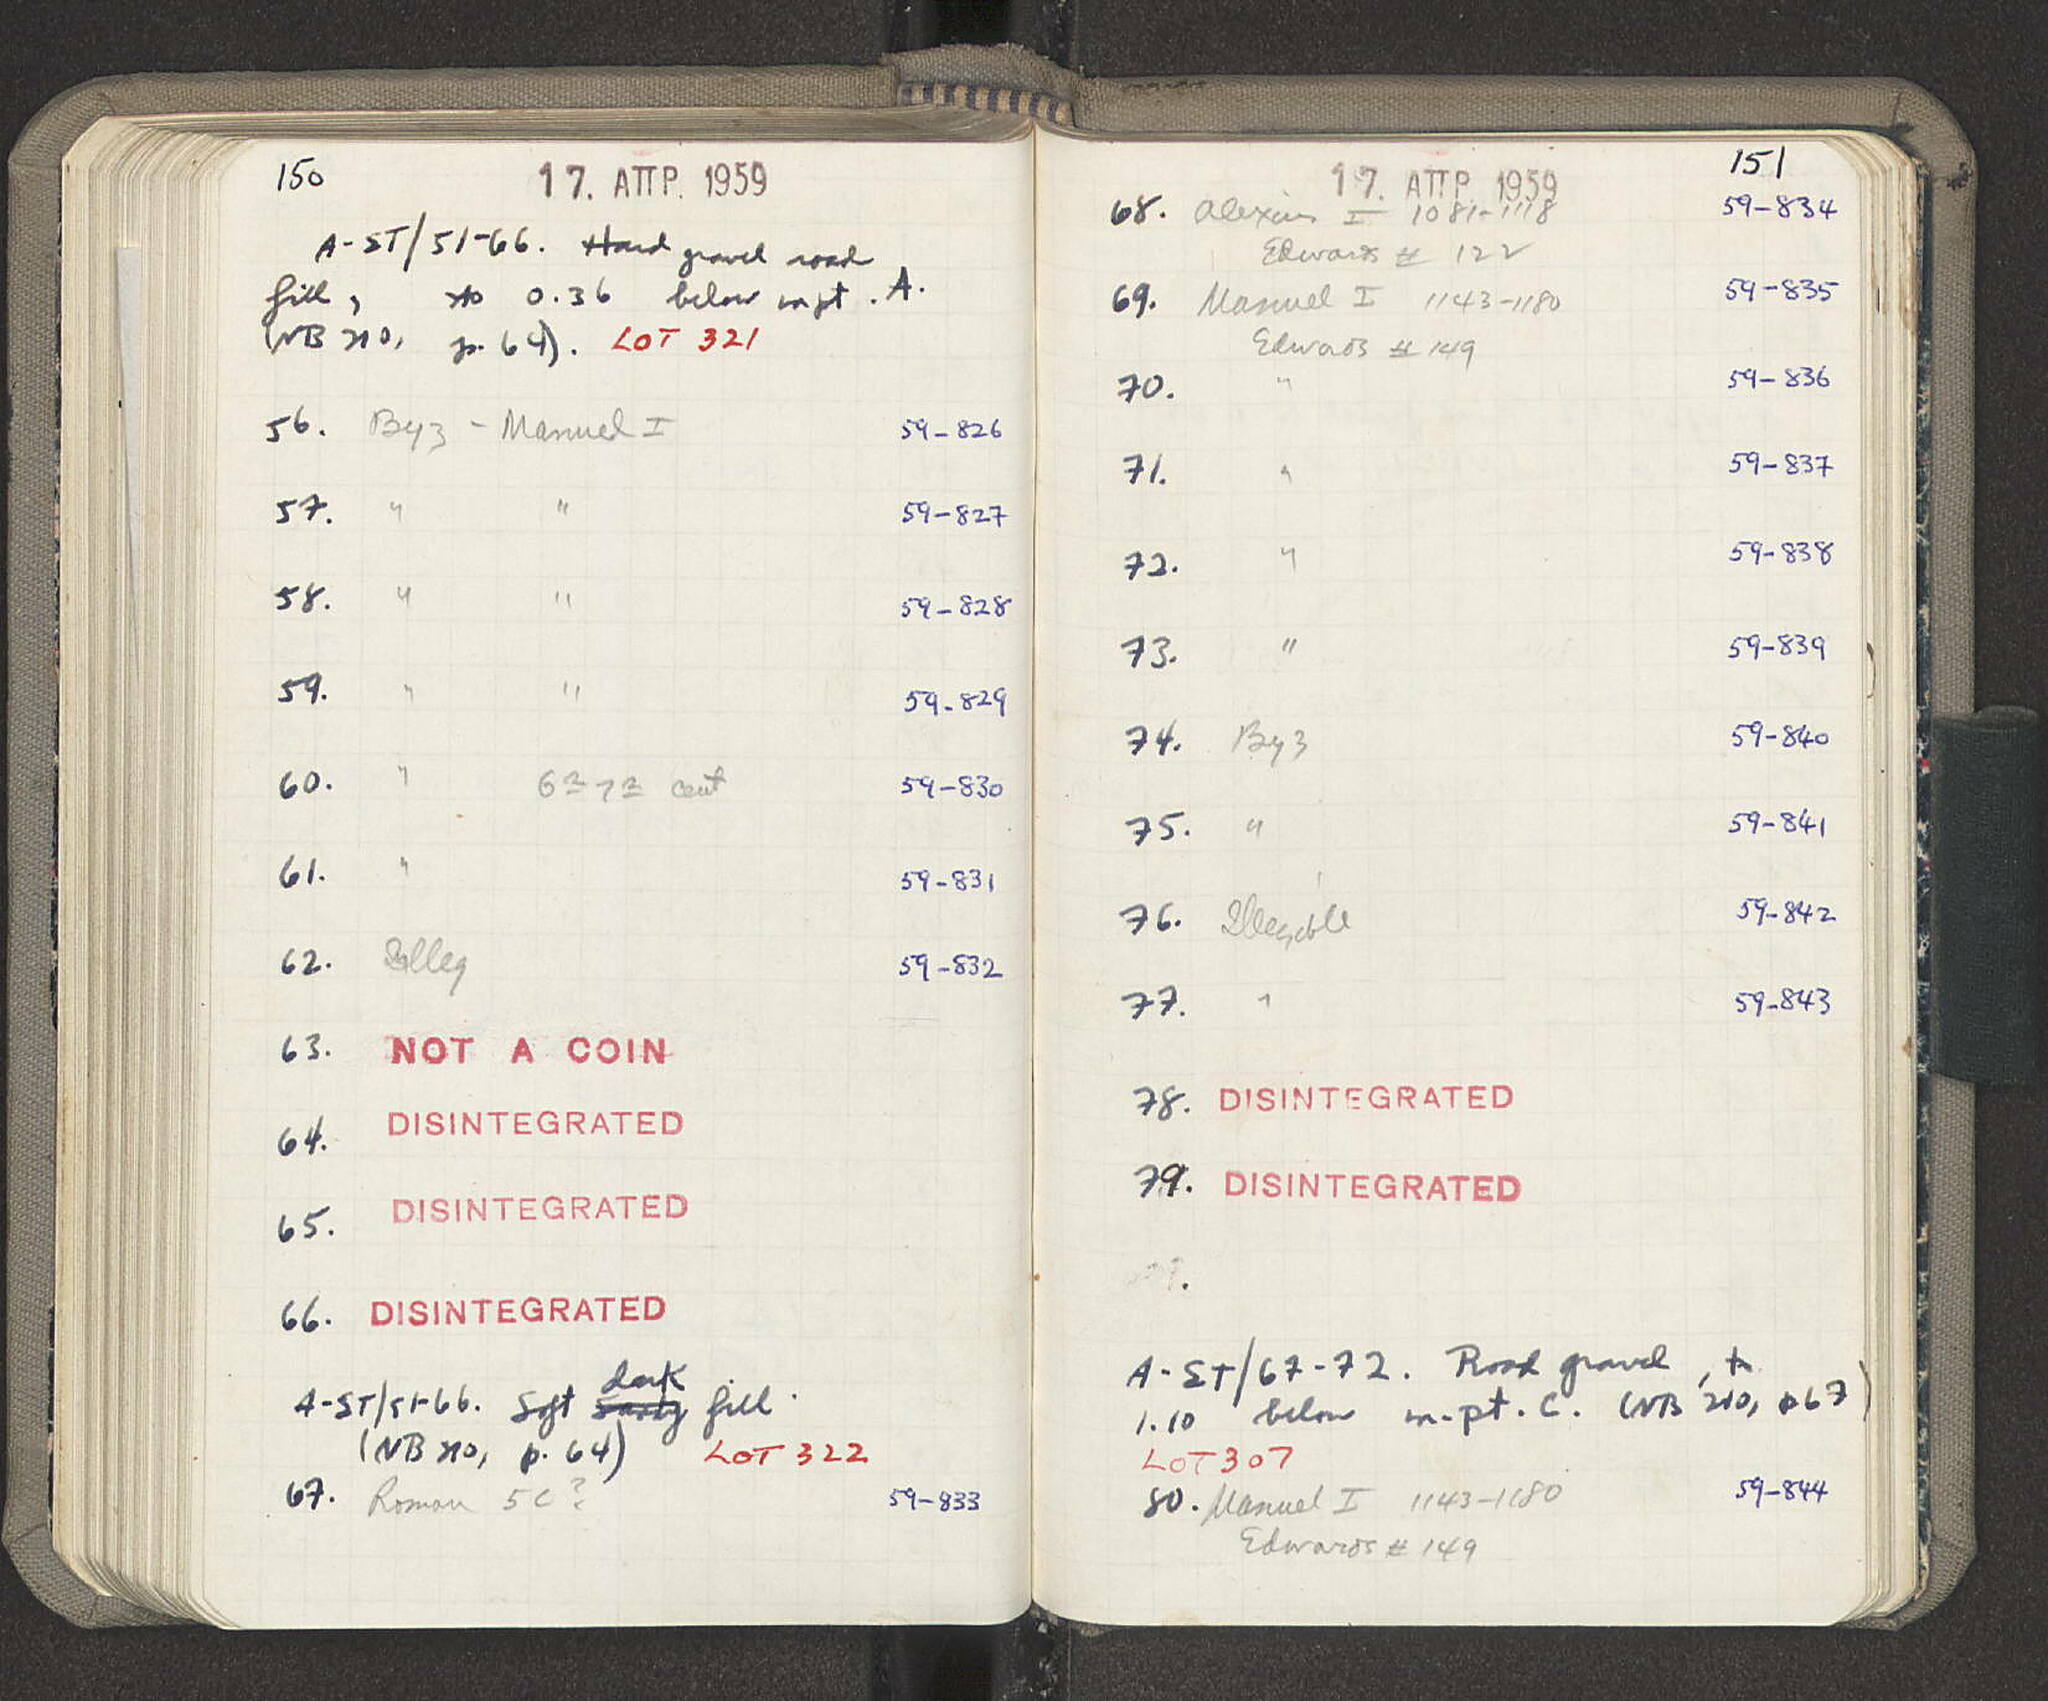 150
17. ΑΠΡ. 1959
A-ΣT/51-66. Hard gravel road
fill, to 0.36 below m.pt. A.
(NB 210, p. 64). LOT 321
56. Byz - Manuel I 59-826
57. " " 59-827
58. " " 59-828
59. " " 59-829
60. " 6th 7th cent 59-830
61. " 59-831
62. Illeg 59-832
63. NOT A COIN
64. DISINTEGRATED
65. DISINTEGRATED
66. DISINTEGRATED
A-ΣT/51-66. Soft dark fill.
(NB 210, p. 64) LOT 322
67. Roman 5C? 59-833
151
17. ΑΠΡ. 1959
68. Alexius I 1081-1118 59-834
Edwards # 122
69. Manuel I 1143-1180 59-835
Edwards # 149
70. " 59-836
71. " 59-837
72. " 59-838
73. " 59-839
74. Byz 59-840
75. " 59-841
76. Illegible 59-842
77. " 59-843
78. DISINTEGRATED
79. DISINTEGRATED
A-ΣT/67-72. Road gravel, to
1.10 below m.pt. C. (NB 210, p67)
LOT 307
80. Manuel I 1143-1180 59-844
Edwards # 149